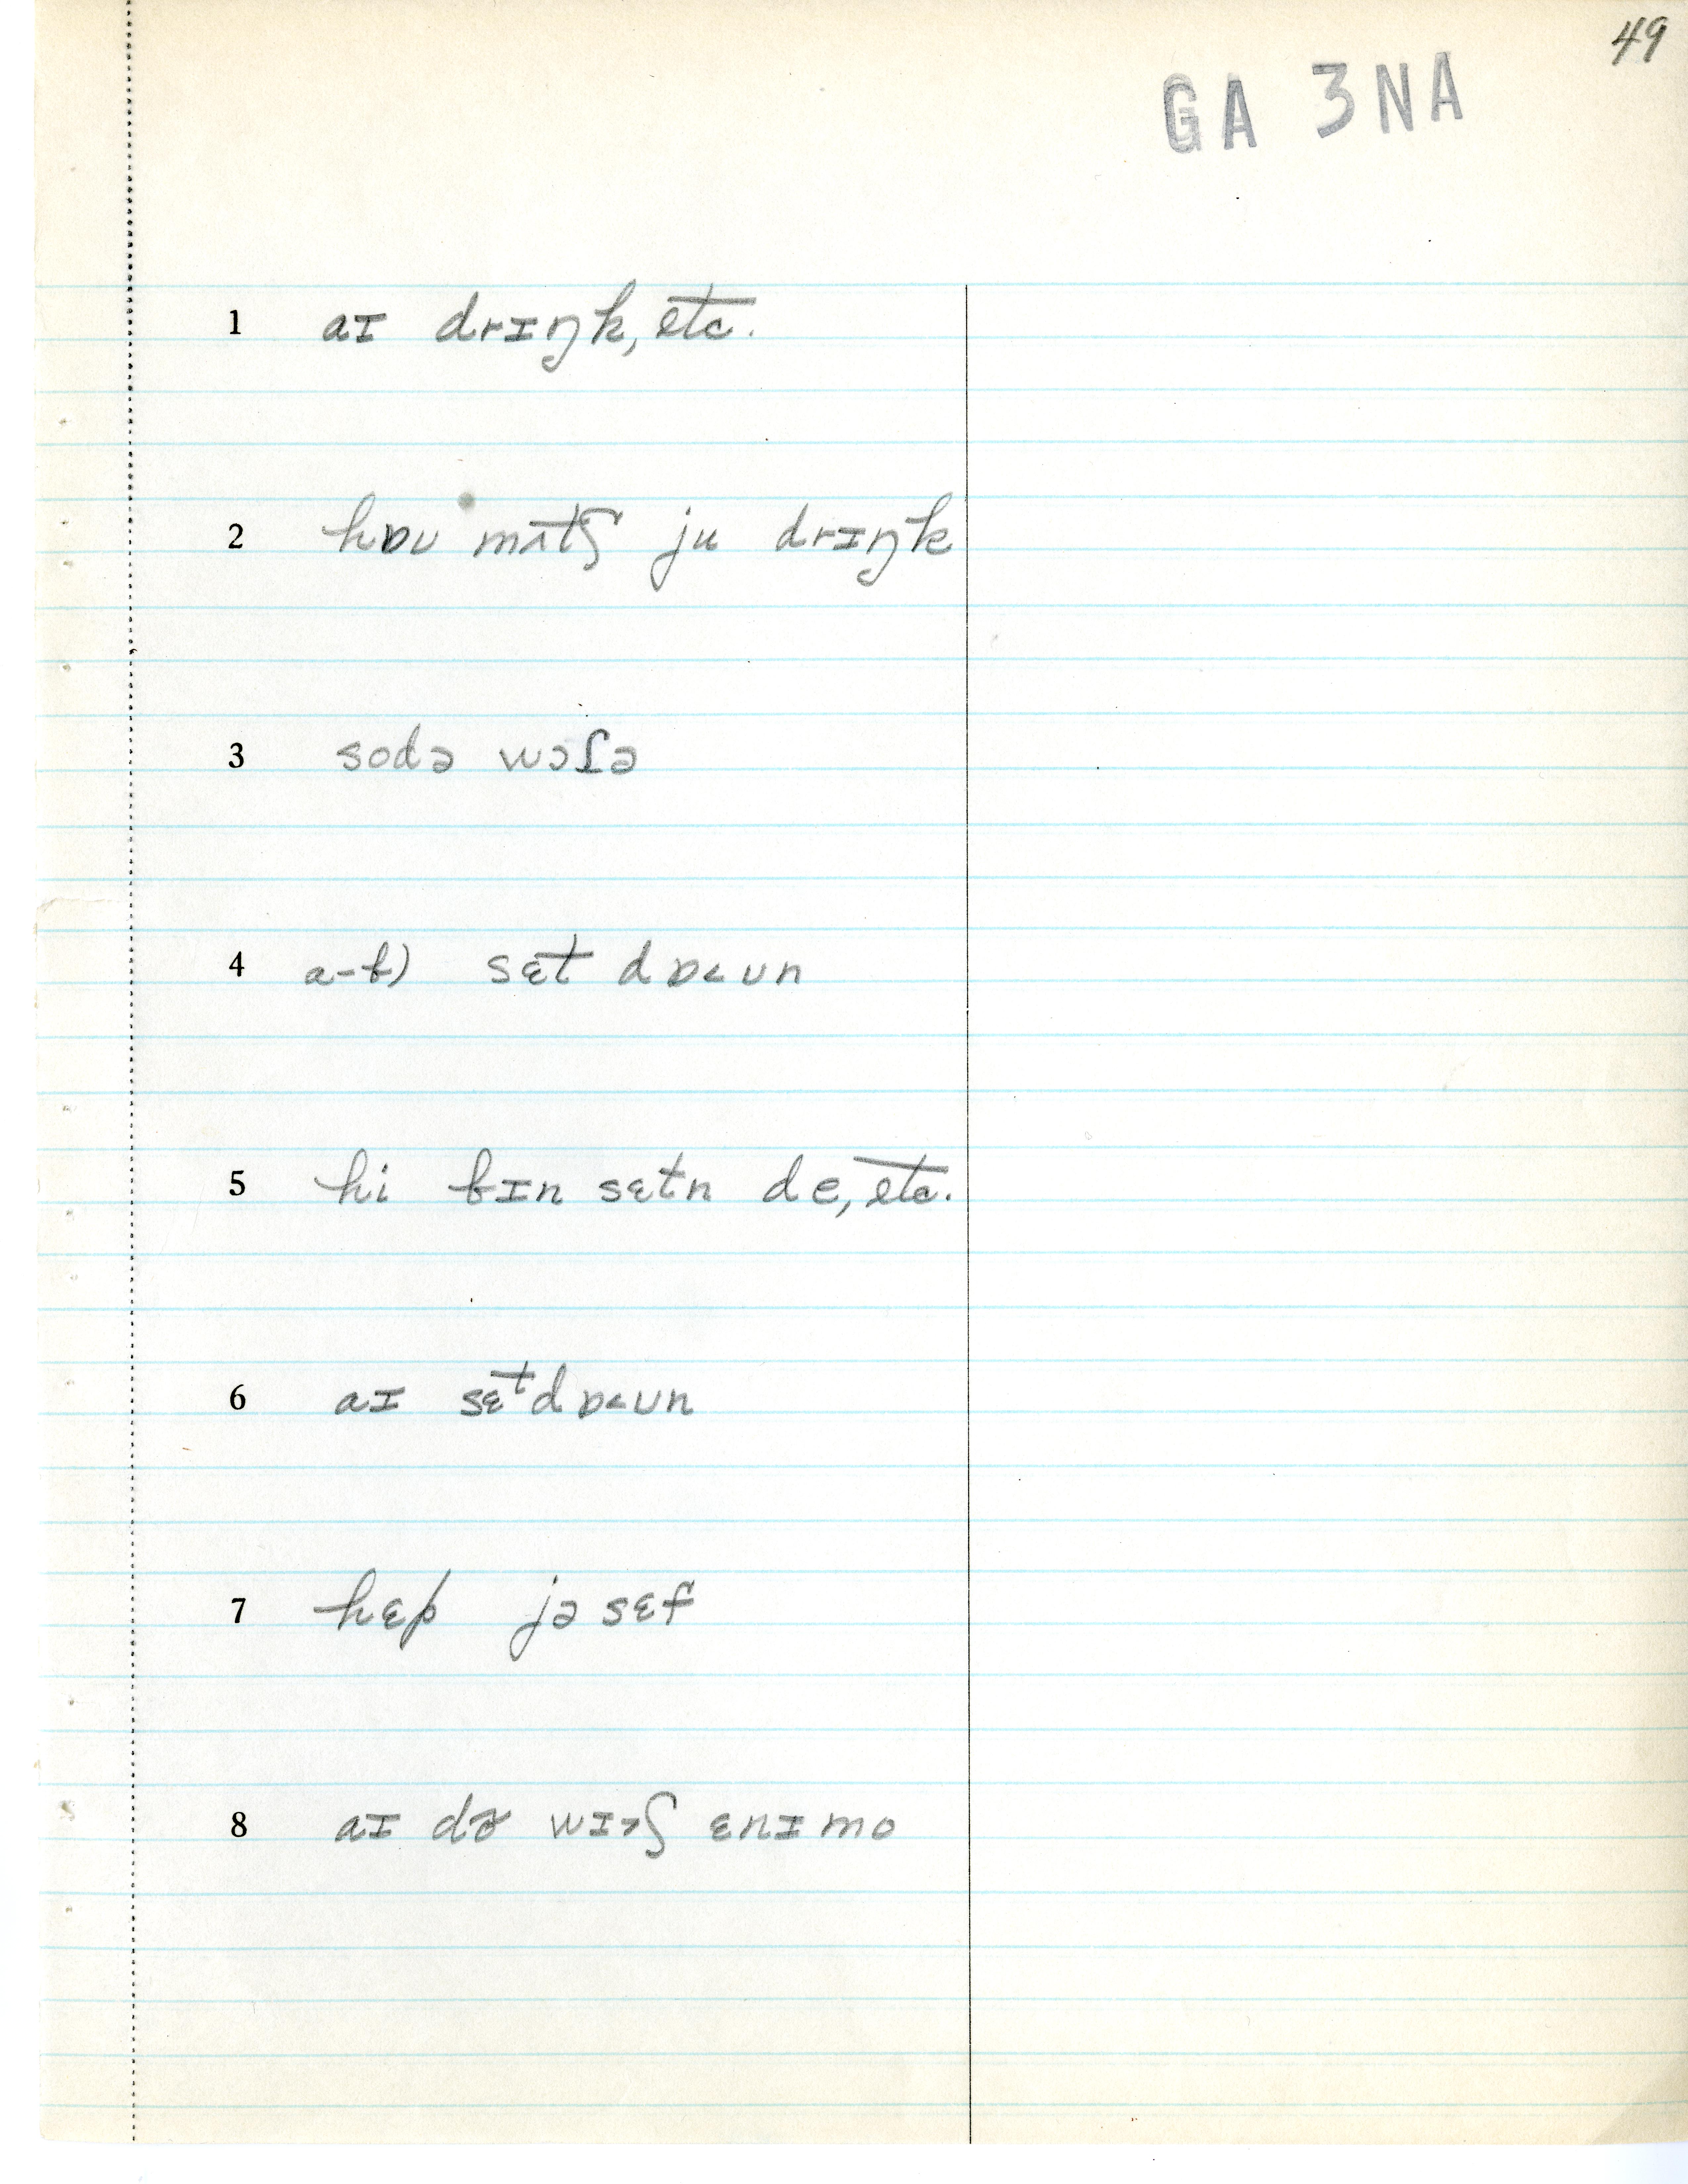 49
GA 3NA
1 aɪ drɪŋk, etc.
2 hɒʊ mʌtʃ ju drɪŋk
3 sodə wɔɾə
4 a-b) sɛt dɒ˂ʊn
5 hi bɪn sɛtn de, etc.
6 aɪ sɛtdɒ˂ʊn
7 hɛp jə sɛf
8 aɪ də̃ wɪɜʃ ɛnɪmo